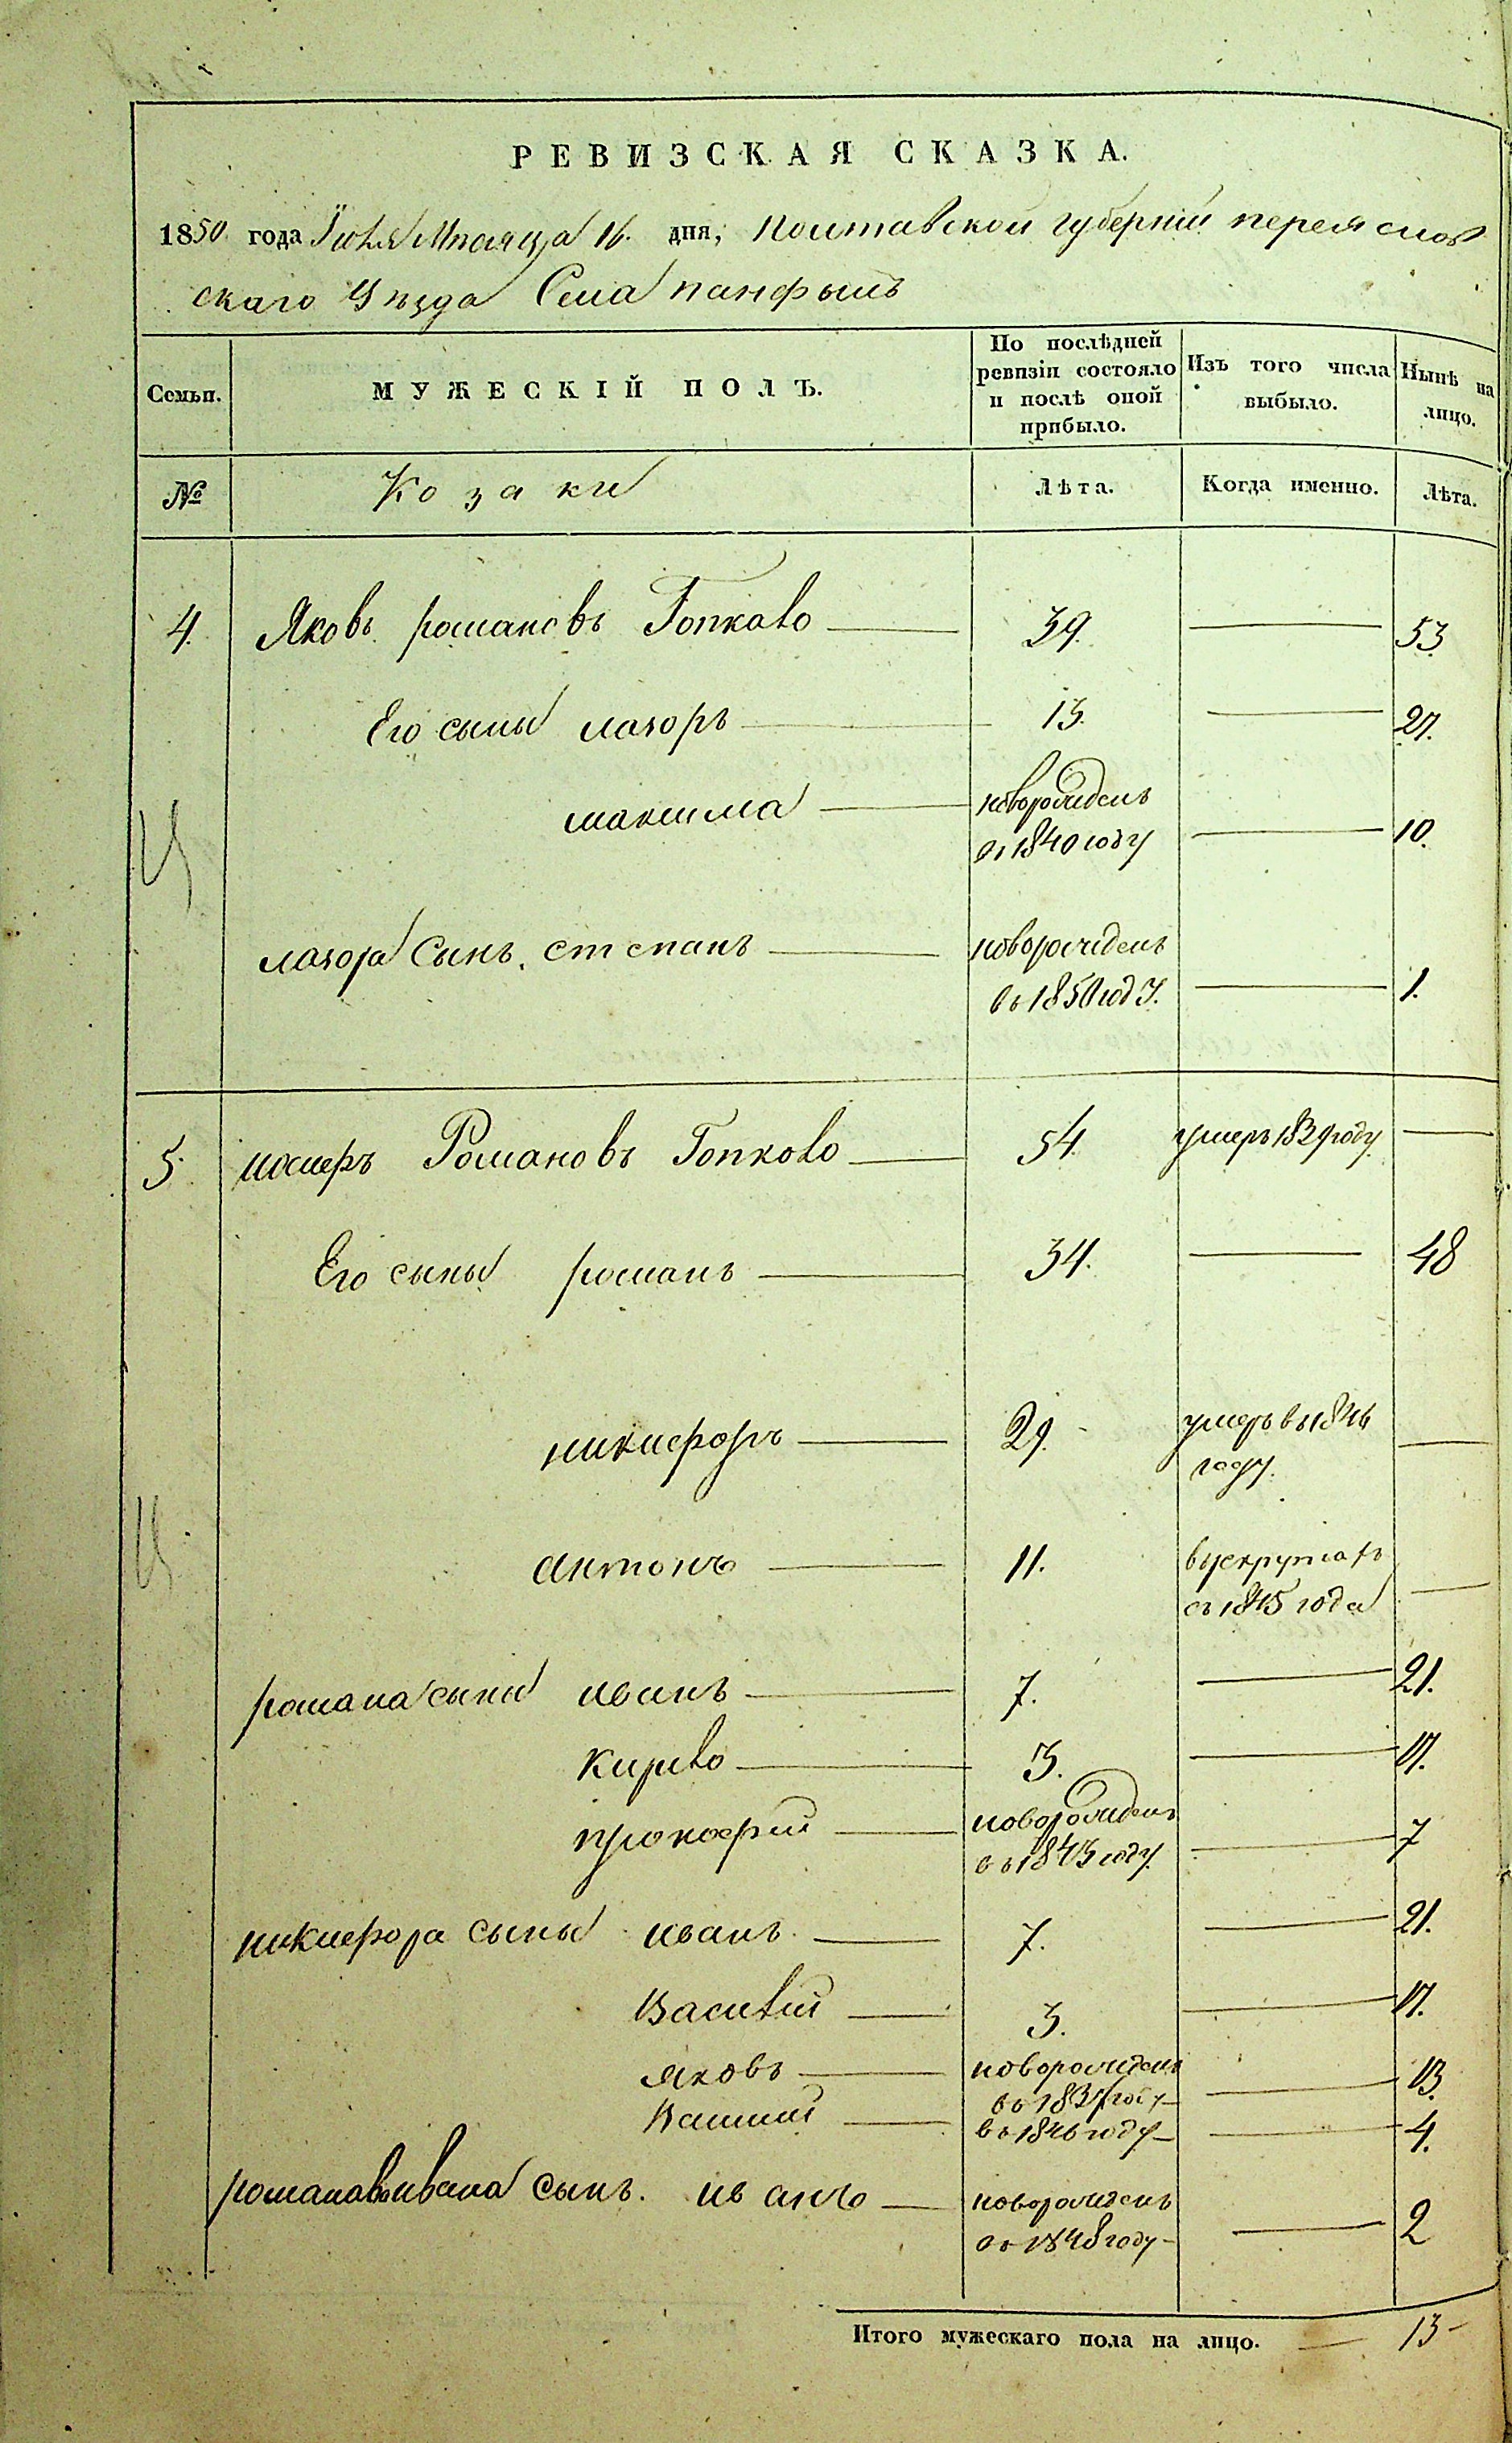 РЕВИЗСКАЯ СКАЗКА.
1850 года Їюля Мѣсяца 16. дня, Полтавской губерніи переяслов
скаго Уѣзда Села панфылъ
Семьи. МУЖЕСКІЙ ПОЛЪ. По послѣдней ревизіи состояло и послѣ оной прибыло. Изъ того числа выбыло. Нынѣ на лицо.
№ Козаки Лѣта. Когда именно. Лѣта.
4. Яковъ романовъ Гопкало 39. 53
Его сыны лазоръ 13. 27.
максима новорожденъ
въ 1840 году 10.
лазора Сынъ. степанъ новорожденъ
въ 1850 году. 1.
5. Романовъ Гопкало 54. умеръ 1839 году
Его сыны романъ 34. 48
никифоръ 29. умеръ въ 1846
году.
антонъ 11. врекрутахъ
съ 1845 года
романа сыны иванъ 7. 21.
Кирило 3. 17.
прокофій новорожденъ
въ 1843 году 7
никифора сыны иванъ. 7. 21.
Василій 3. 17.
яковъ новорожденъ
въ 1837 году 13.
Василій въ 1846 году 4.
ивана сынъ. иванъ новорожденъ
въ 1848 году 2
Итого мужескаго пола на лицо. 13